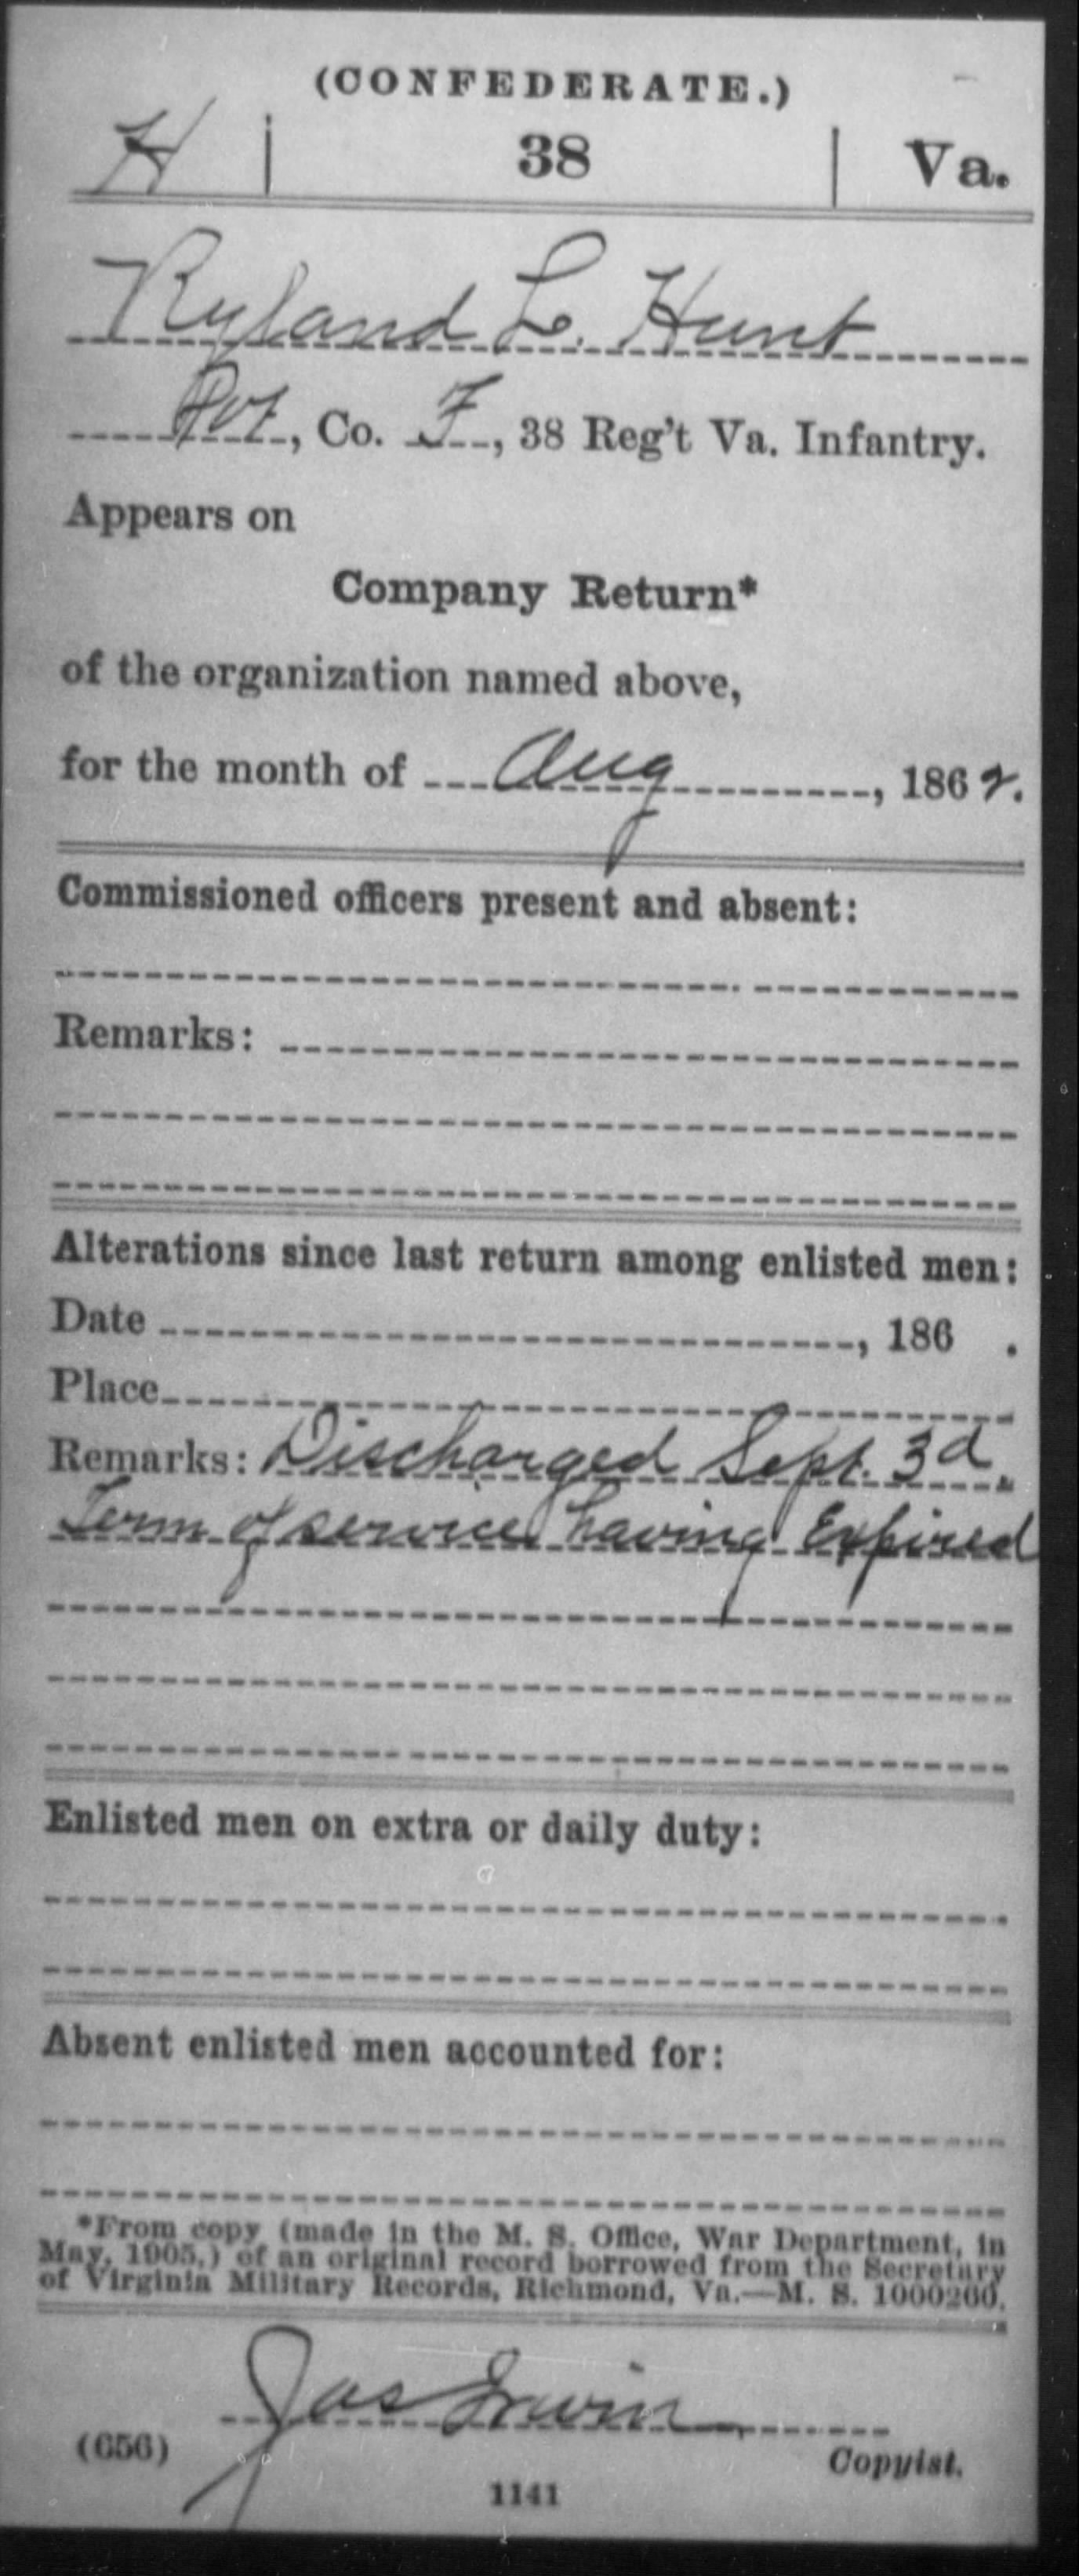 (CONFEDERATE.)
H | 38 | Va.
Ryland L. Hunt
Pvt, Co. F, 38 Reg't Va. Infantry.
Appears on
Company Return*
of the organization named above,
for the month of Aug, 1862.
Commissioned officers present and absent:
Remarks:
Alterations since last return among enlisted men:
Date , 186 .
Place
Remarks: Discharged Sept. 3d.
Term of service having Expired
Enlisted men on extra or daily duty:
Absent enlisted men accounted for:
*From copy (made in the M. S. Office, War Department, in
May, 1905,) of an original record borrowed from the Secretary
of Virginia Military Records, Richmond, Va.—M. S. 1000260.
Jas Irwin
(656) Copyist.
1141